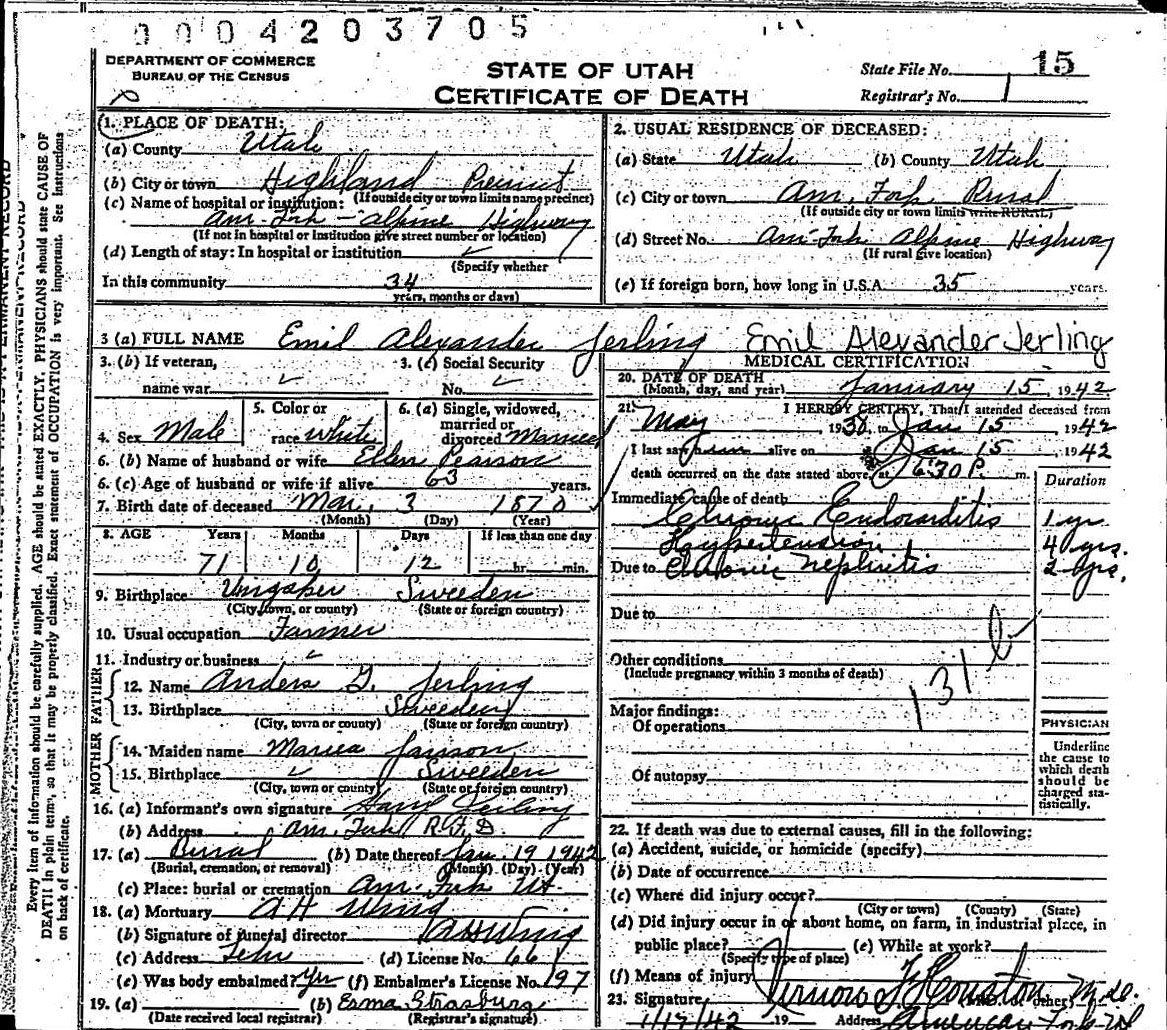 0004203705
DEPARTMENT OF COMMERCE
BUREAU OF THE CENSUS
STATE OF UTAH
CERTIFICATE OF DEATH
State File No. 15
Registrar's No. 1
1. PLACE OF DEATH:
(a) County Utah
(b) City or town Highland Precinct
(If outside city or town limits name precinct)
(c) Name of hospital or institution:
Am. Fork - Alpine Highway
(If not in hospital or institution give street number or location)
(d) Length of stay: In hospital or institution
(Specify whether
In this community 34
years, months or days)
2. USUAL RESIDENCE OF DECEASED:
(a) State Utah (b) County Utah
(c) City or town Am. Fork Rural
(If outside city or town limits write RURAL)
(d) Street No. Am. Fork Alpine Highway
(If rural give location)
(e) If foreign born, how long in U.S.A. 35 years.
3 (a) FULL NAME Emil Alexander Jerling Emil Alexander Jerling
3. (b) If veteran,
name war
3. (c) Social Security
No.
4. Sex Male
5. Color or
race white
6. (a) Single, widowed,
married or
divorced Married
6. (b) Name of husband or wife Ellen Pearson
6. (c) Age of husband or wife if alive 63 years.
7. Birth date of deceased Mar. 3 1870
(Month) (Day) (Year)
8. AGE Years Months Days If less than one day
71 10 12 hr. min.
9. Birthplace Sweeden
(City, town, or county) (State or foreign country)
10. Usual occupation Farmer
11. Industry or business
FATHER
12. Name Anders G. Jerling
13. Birthplace Sweeden
(City, town or county) (State or foreign country)
MOTHER
14. Maiden name Janson
15. Birthplace Sweeden
(City, town or county) (State or foreign country)
16. (a) Informant's own signature Jerling
(b) Address Am. Fork R.F.D.
17. (a) Burial (b) Date thereof Jan. 19 1942
(Burial, cremation, or removal) (Month) (Day) (Year)
(c) Place: burial or cremation Am. Fork Ut.
18. (a) Mortuary A H Wing
(b) Signature of funeral director AH Wing
(c) Address Lehi (d) License No. 66
(e) Was body embalmed? Yes (f) Embalmer's License No. 197
19. (a) (b) Erma Strasburg
(Date received local registrar) (Registrar's signature)
MEDICAL CERTIFICATION
20. DATE OF DEATH
(Month, day, and year) January 15 1942
21. I HEREBY CERTIFY, That I attended deceased from
May 1938, to Jan 15 1942
I last saw him alive on Jan 15 1942
death occurred on the date stated above, at 6:30 P. m.
Duration
Immediate cause of death
Chronic Endocarditis 1 yr.
Hypertension 4 yrs.
Due to Chronic Nephritis 2 yrs.
Due to
Other conditions
(Include pregnancy within 3 months of death)
131 b
Major findings:
Of operations
Of autopsy
PHYSICIAN
Underline
the cause to
which death
should be
charged sta-
tistically.
22. If death was due to external causes, fill in the following:
(a) Accident, suicide, or homicide (specify)
(b) Date of occurrence
(c) Where did injury occur?
(City or town) (County) (State)
(d) Did injury occur in or about home, on farm, in industrial place, in
public place? (e) While at work?
(Specify type of place)
(f) Means of injury
23. Signature Vernon F Houston M.D. or other)
1/17/42 19 Address American Fork
Every item of information should be carefully supplied. AGE should be stated EXACTLY. PHYSICIANS should state CAUSE OF
DEATH in plain terms, so that it may be properly classified. Exact statement of OCCUPATION is very important. See instructions
on back of certificate.